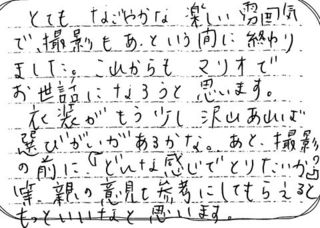 とても なごやかな 楽しい 雰囲気
で、撮影も あっという間に 終わり
ました。これからも マリオで
お世話になろうと 思います。
衣装が もう少し 沢山あれば
選びがいがあるかな。あと、撮影
の前に「どんな感じでとりたいか」
等、親の意見も参考にしてもらえると
もっといいなと思います。